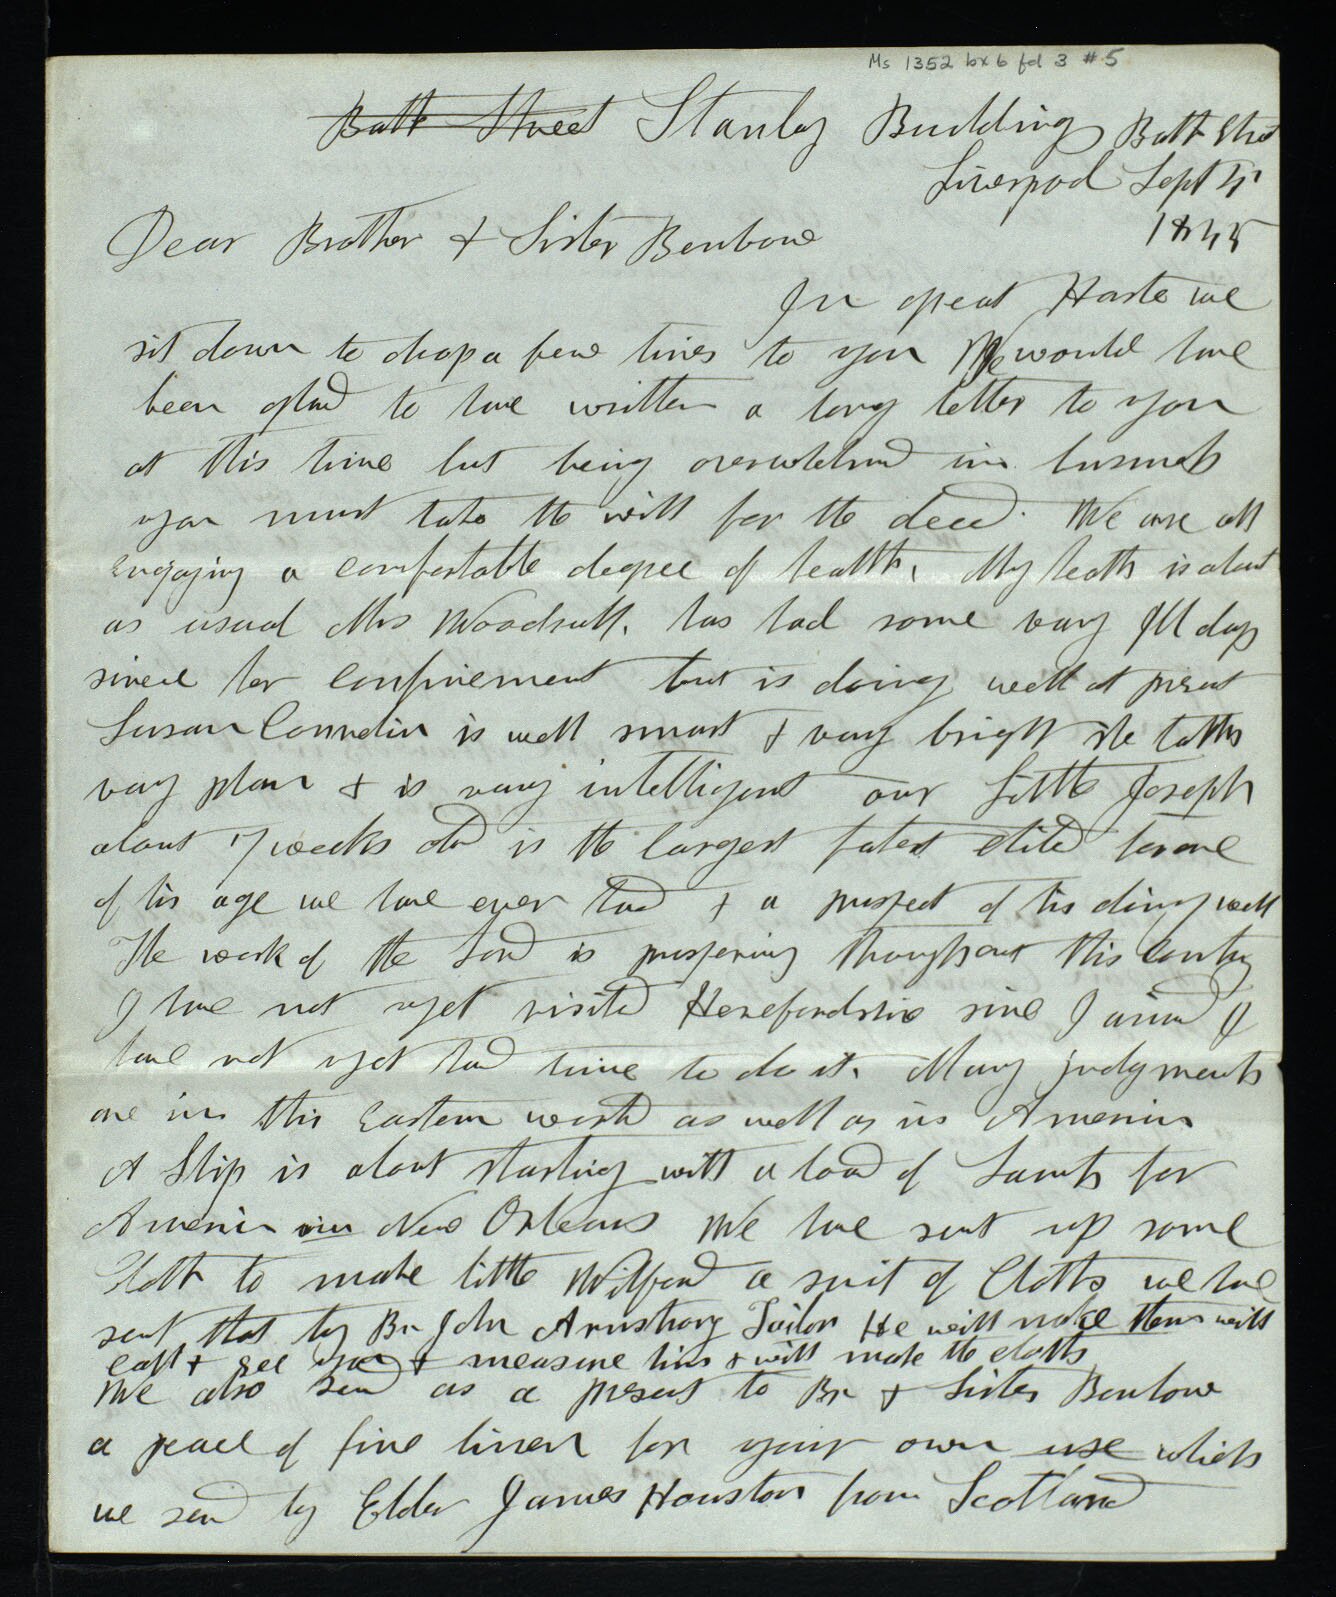 Ms 1352 bx 6 fd 3 #5
Bath Street Stanley Buildings Bath Street
Liverpool Sept 4
1845
Dear Brother & Sister Benbow
In great Haste we
sit down to drop a few lines to you We would have
been glad to have written a long letter to you
at this time but being overwhelmed in business
you must take the will for the deed. We are all
enjoying a comfortable degree of health. My health is about
as usual Mrs Woodruff. has had some vary Ill days
since her confinement but is doing well at present
Susan Cornelia is well smart & vary bright she talks
vary plain & is vary intelligent our little Joseph
about 7 weeks old is the largest fatest child for one
of his age we have ever had & a prospect of his doing well
The work of the Lord is prospering throughout this Country
I have not yet visited Herefordshire since I arived I
have not yet had time to do it. Many judgments
are in this Eastern world as well as in America
A Ship is about starting with a load of Saints for
America in New Orleans We have sent up some
Cloth to make little Wilford a suit of Cloths we have
sent that by Br John Armstrong Tailor He will make them will
call & see you & measure him & will make the cloths
We also send as a present to Br & Sister Benbow
a peace of fine linen for your own use which
we send by Elder James Houston from Scotland